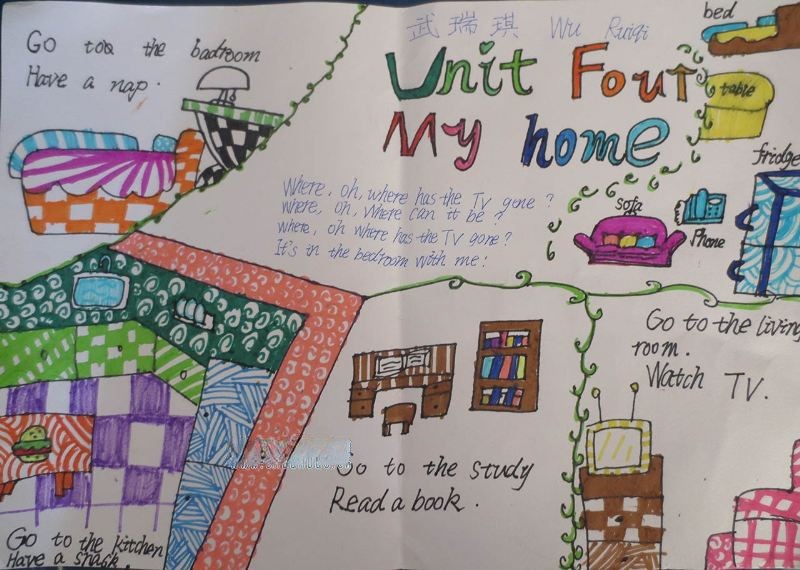 武瑞琪 Wu Ruiqi
Unit Four
My home
Go too the badroom
Have a nap.
bed
table
fridge
sofa
Phone
Where, oh, where has the TV gone?
where, oh, where can it be?
where, oh where has the TV gone?
It's in the bedroom with me!
Go to the living
room.
Watch TV.
Go to the study
Read a book.
Go to the kitchen
Have a snack.